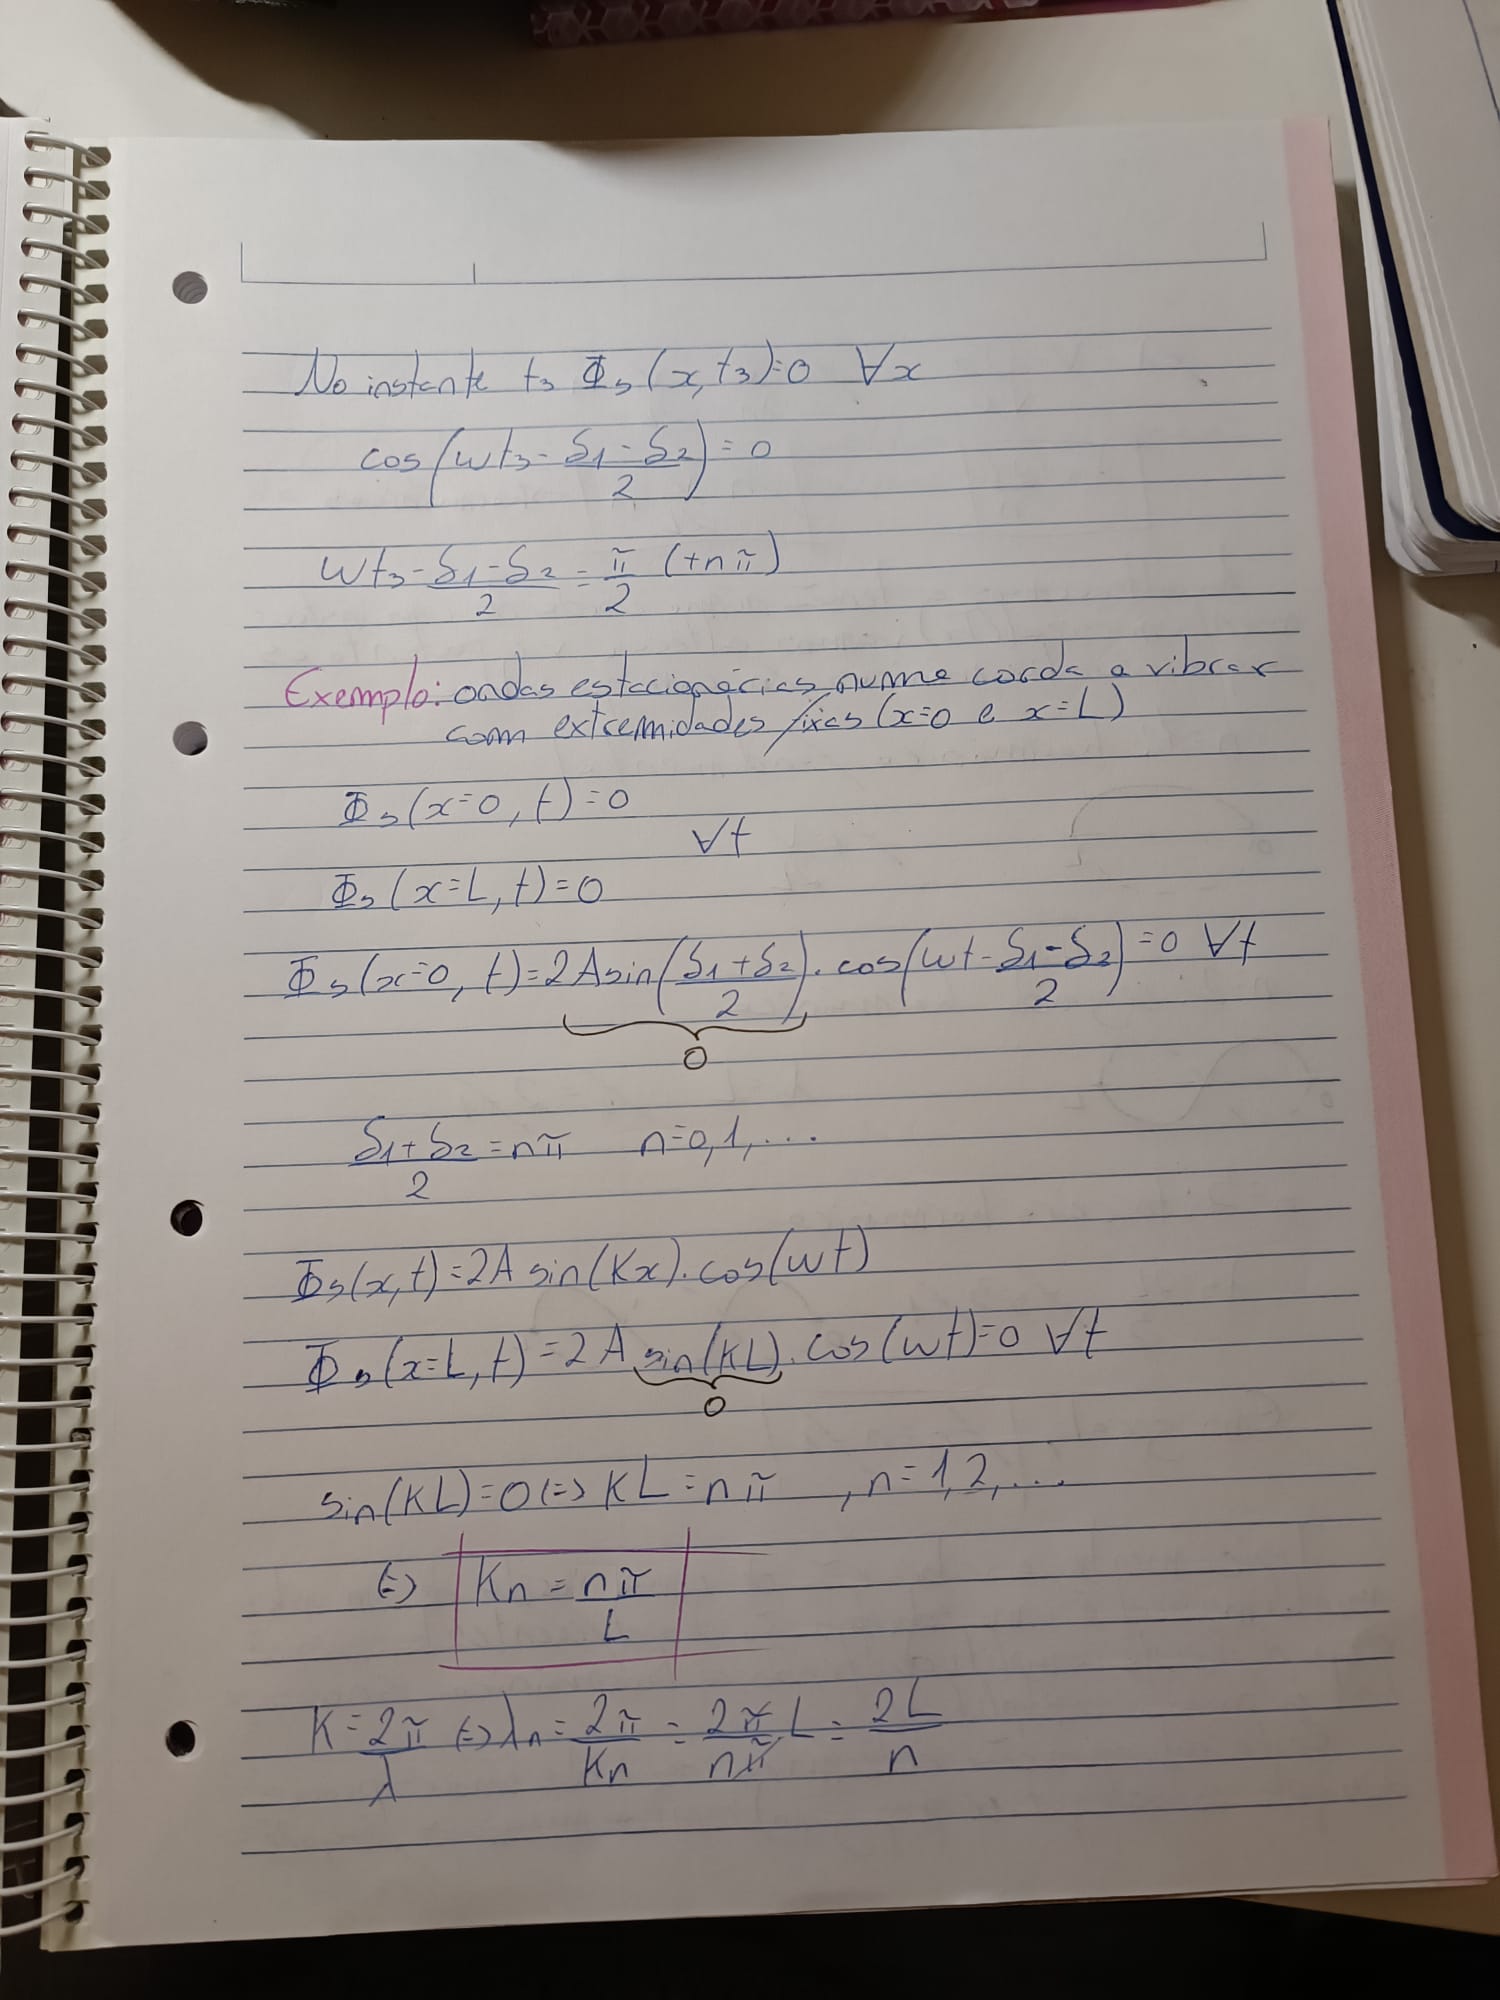 No instante t₃ Φₛ(x,t₃)=0 ∀x
cos(wt₃ - (δ₁-δ₂)/2) = 0
wt₃ - (δ₁-δ₂)/2 = π/2 (+nπ)
Exemplo: ondas estacionárias numa corda a vibrar
com extremidades fixas (x=0 e x=L)
Φₛ(x=0,t)=0
∀t
Φₛ(x=L,t)=0
Φₛ(x=0,t)=2Asin((δ₁+δ₂)/2).cos(wt-(δ₁-δ₂)/2)=0 ∀t
0
(δ₁+δ₂)/2=nπ n=0,1,...
Φₛ(x,t)=2A sin(Kx).cos(wt)
Φₛ(x=L,t)=2A sin(KL).cos(wt)=0 ∀t
0
sin(KL)=0 (=) KL=nπ , n=1,2,...
(=) Kn = nπ/L
K=2π/λ (=) λn = 2π/Kn = 2π/nπ L = 2L/n